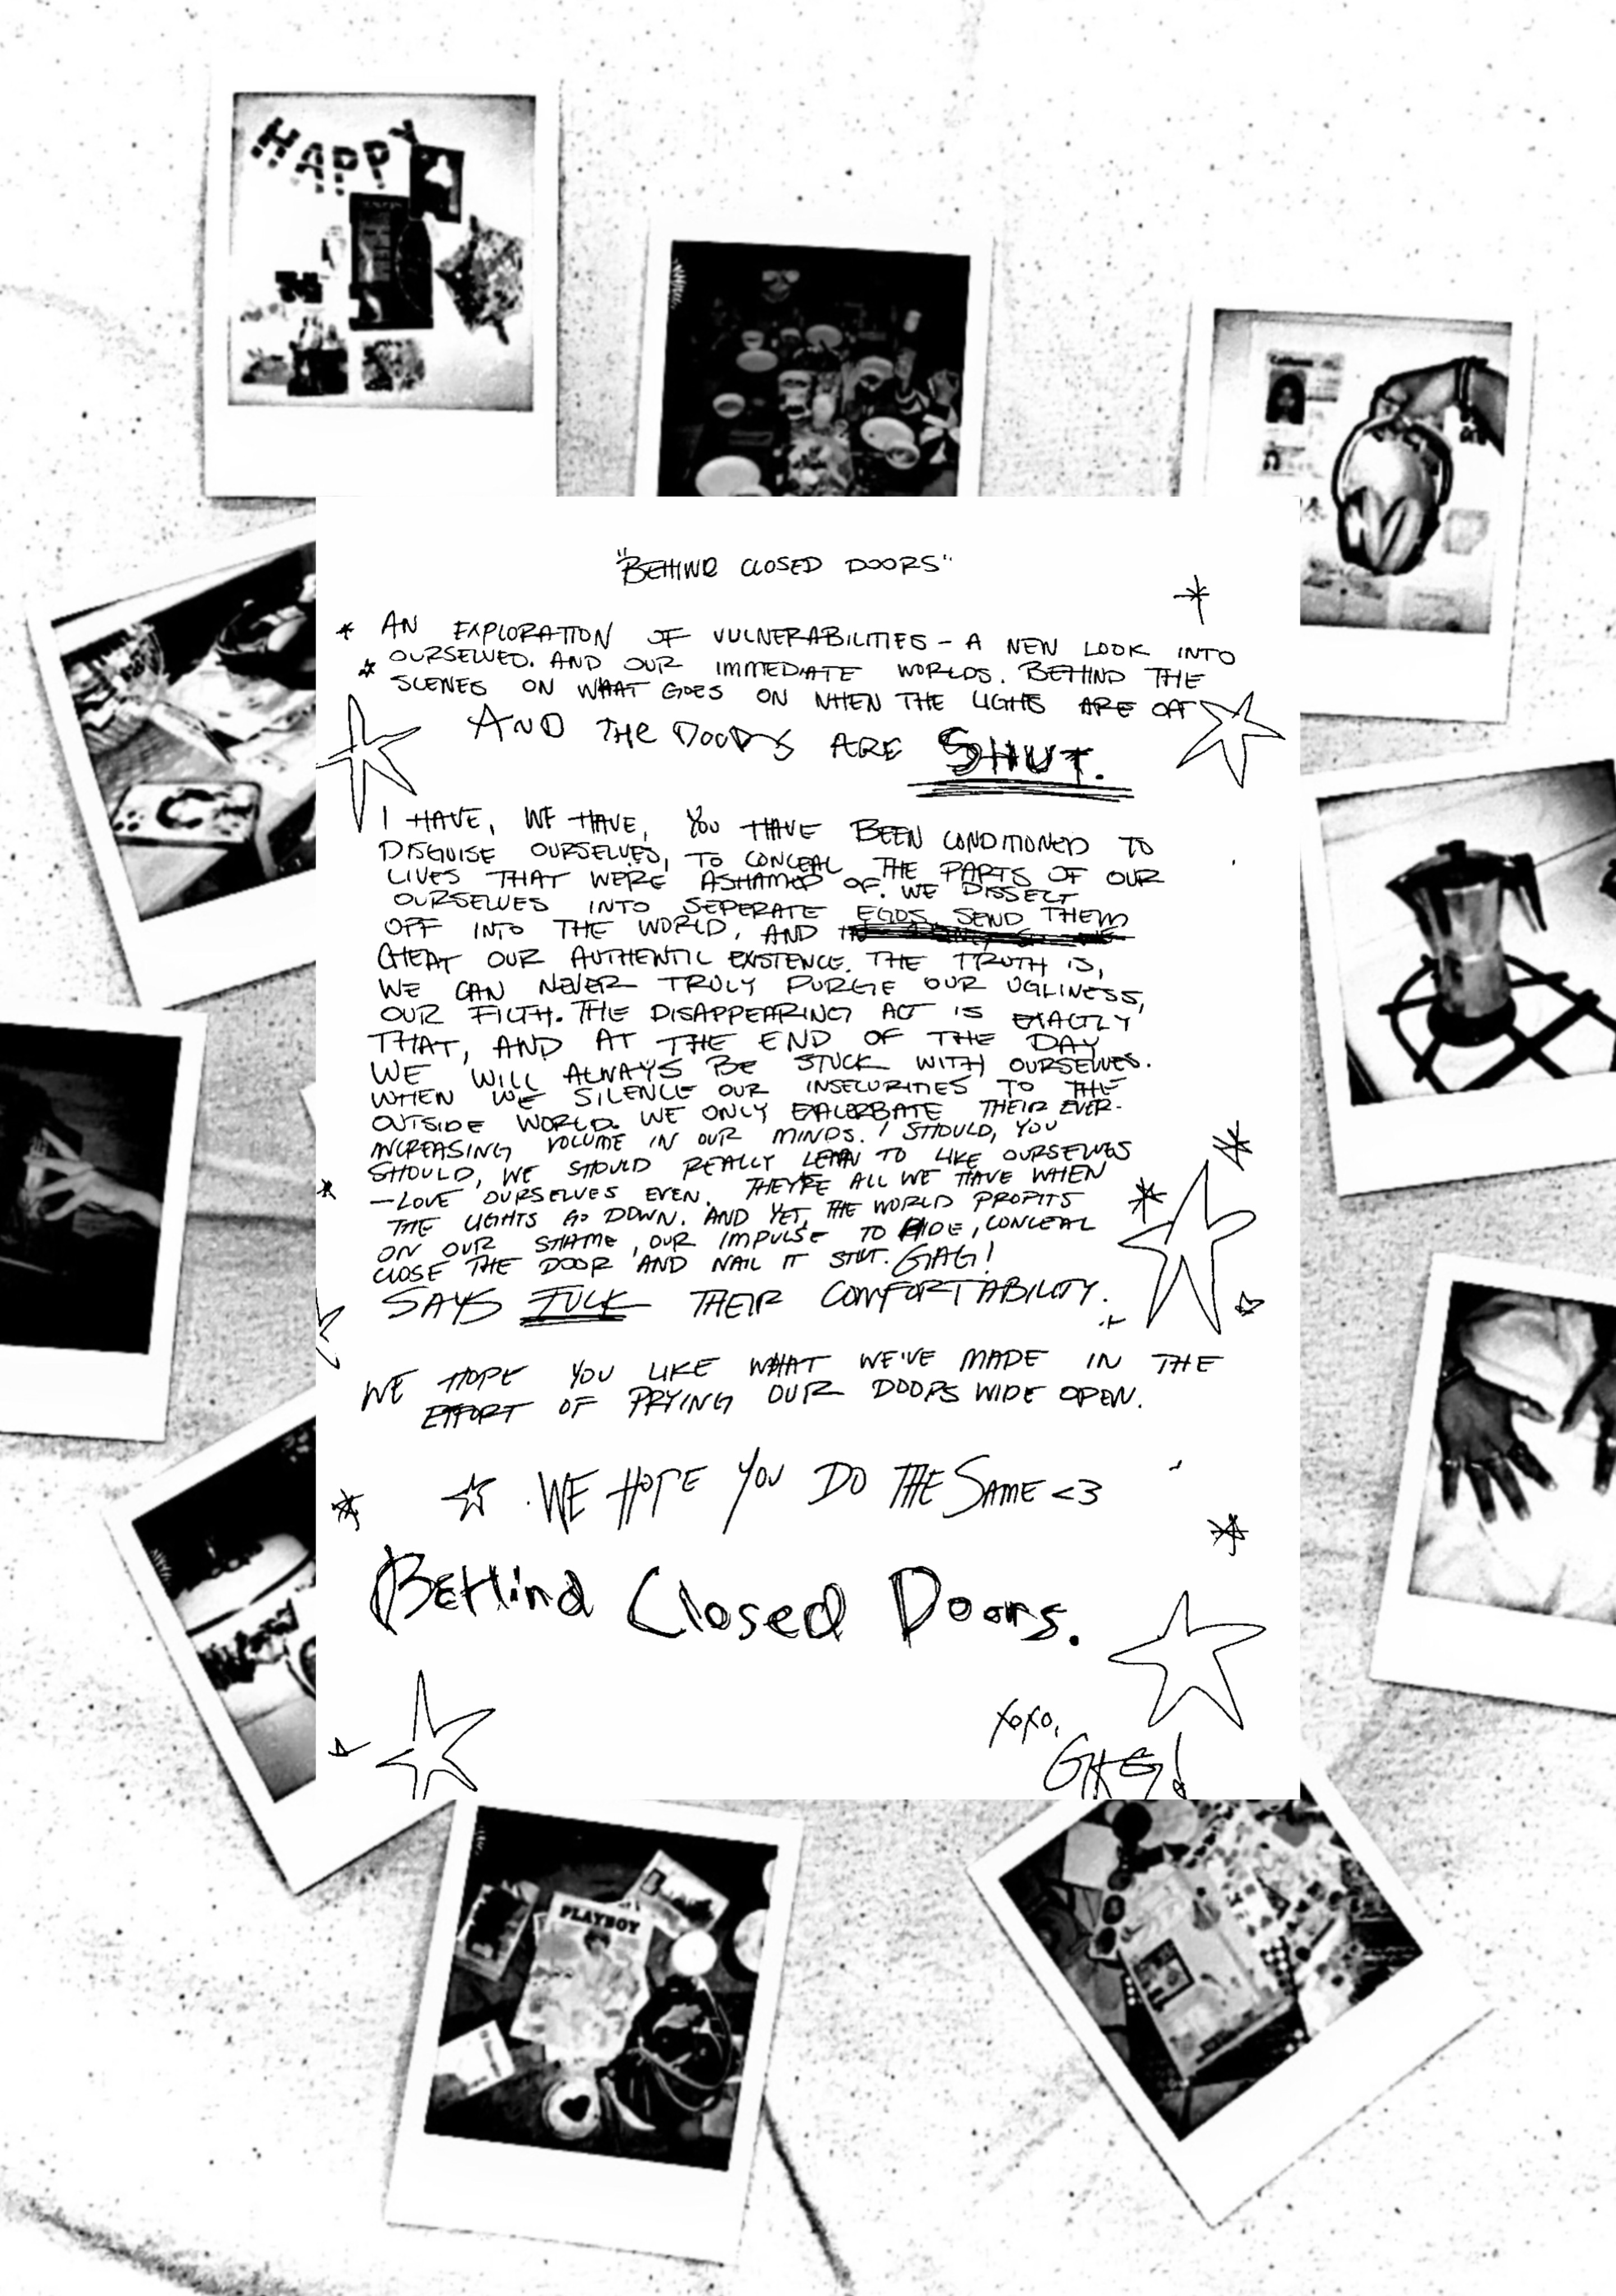 HAPPY
"BEHIND CLOSED DOORS"
AN EXPLORATION OF VULNERABILITIES - A NEW LOOK INTO
OURSELVED. AND OUR IMMEDIATE WORLDS. BEHIND THE
SCENES ON WHAT GOES ON WHEN THE LIGHTS ARE OFF
AND THE DOORS ARE SHUT.
I HAVE, WE HAVE, YOU HAVE BEEN CONDITIONED TO
DISGUISE OURSELVES, TO CONCEAL THE PARTS OF OUR
LIVES THAT WERE ASHAMED OF. WE DISSECT
OURSELVES INTO SEPERATE EGOS, SEND THEM
OFF INTO THE WORLD, AND
CHEAT OUR AUTHENTIC EXISTENCE. THE TRUTH IS,
WE CAN NEVER TRULY PURGE OUR UGLINESS,
OUR FILTH. THE DISAPPEARING ACT IS EXACTLY
THAT, AND AT THE END OF THE DAY
WE WILL ALWAYS BE STUCK WITH OURSELVES.
WHEN WE SILENCE OUR INSECURITIES TO THE
OUTSIDE WORLD. WE ONLY EXACERBATE THEIR EVER-
INCREASING VOLUME IN OUR MINDS. I SHOULD, YOU
SHOULD, WE SHOULD REALLY LEARN TO LIKE OURSELVES
—LOVE OURSELVES EVEN. THEY'RE ALL WE HAVE WHEN
THE LIGHTS GO DOWN. AND YET, THE WORLD PROFITS
ON OUR SHAME, OUR IMPULSE TO HIDE, CONCEAL
CLOSE THE DOOR AND NAIL IT SHUT. GAG!
SAYS FUCK THEIR COMFORTABILITY.
WE HOPE YOU LIKE WHAT WE'VE MADE IN THE
EFFORT OF PRYING OUR DOORS WIDE OPEN.
WE HOPE YOU DO THE SAME <3
BEHind Closed Doors.
XOXO,
GAG!
PLAYBOY